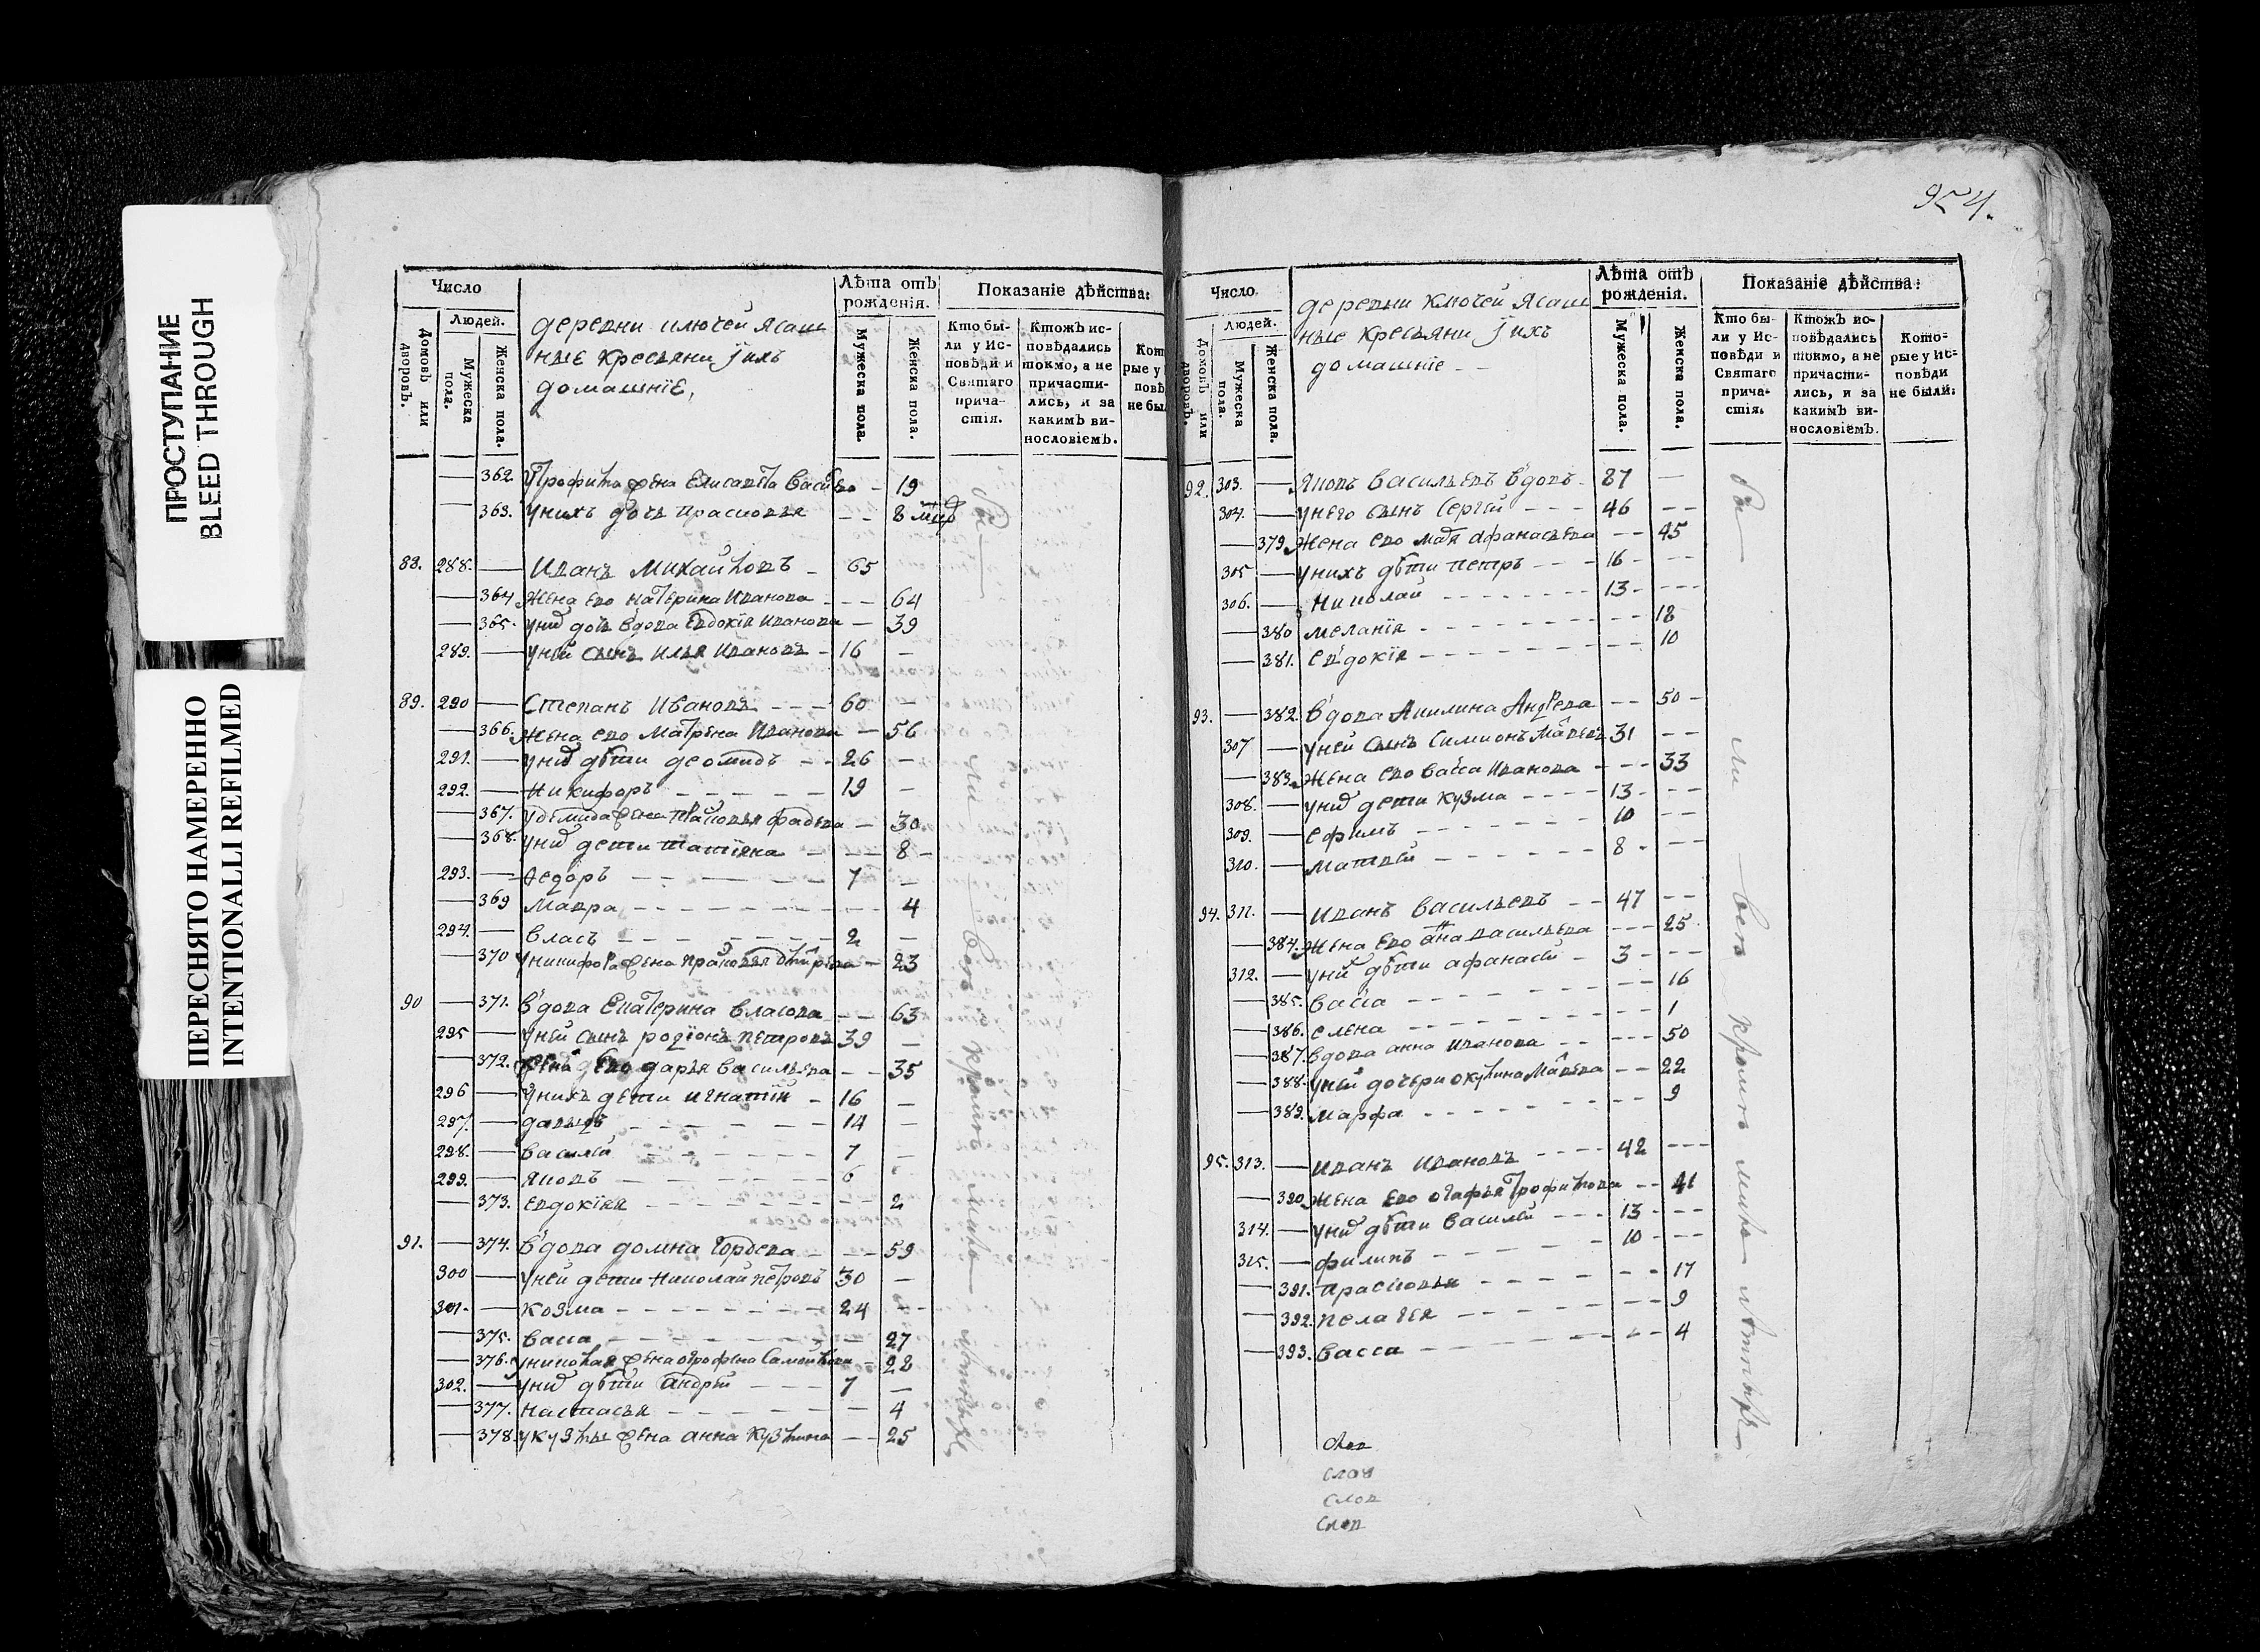 ПРОСТУПАНИЕ
BLEED THROUGH
ПЕРЕСНЯТО НАМЕРЕННО
INTENTIONALLI REFILMED
Число
Людей.
Домовъ или дворовъ.
Мужеска пола.
Женска пола.
деревни ключей Ясаш
ные кресьяни јихъ
домашніе,
Лѣта отъ рожденія.
Мужеска пола.
Женска пола.
Показаніе дѣйства:
Кто бы-
ли у Ис-
повѣди и
Святаго
прича-
стія.
Ктожъ ис-
повѣдались
токмо, а не
причасти-
лись, и за
какимъ ви-
нословіемъ.
362. Трофима жена Елисавета Васи 19
363. Унихъ дочь Прасковья 8
88. 288. Иванъ Михайловъ 65
364. Жена ево Катерина Иванова 64
365. Уних дочь вдова Евдокія Иванова 39
289. Уней сынъ Илья Ивановъ 16
89. 290 Степанъ Ивановъ 60
366. Жена ево Матрена Иванова 56
291. Уних дѣти деомидъ 26
292. Никифоръ 19
367. жена 30
368. Уних дети татіяна 8
293. Федоръ 7
369 Мавра 4
294. Власъ 2
370 Уникифора жена Прасковья 23
90 371. Вдова Екатерина Власова 63
295 Уней сынъ родіонъ Петровъ 39
372. Жена ево дарья Васильева 35
296 Унихъ дети игнатій 16
297. давыдъ 14
298. Василей 7
299. Яковъ 6
373. Евдокіия 2
91. 374. Вдова домна 59
300 Уней дети Николай Петровъ 30
301. Козма 24
375. Васса 27
376. Униколая жена 28
302. Уних дѣти Андрей 7
377. Настасья 4
378. Укузмы жена анна Кузмина 25
954.
Число
Людей.
Домовъ или дворовъ.
Мужеска пола.
Женска пола.
деревни ключей Ясаш
ные кресьяни јихъ
домашніе
Лѣта отъ рожденія.
Мужеска пола.
Женска пола.
Показаніе дѣйства:
Кто бы-
ли у Ис-
повѣди и
Святаго
прича-
стія.
Ктожъ ис-
повѣдались
токмо, а не
причасти-
лись, и за
какимъ ви-
нословіемъ.
Кото-
рые у Ис-
повѣди
не были.
92. 303. Яковъ Васильевъ вдовъ 87
304. Унего сынъ Сергей 46
379. Жена ево афанасьева 45
305 Унихъ дѣти петръ 16
306. Николай 13
380 Меланія 18
381. Евдокія 10
93. 382. Вдова Акилина Андреева 50
307 Уней сынъ Симионъ 31
383. Жена ево Васса Иванова 33
308. Уних дети Кузма 13
309. Ефимъ 10
310. Матвей 8
94. 311. Иванъ Васильевъ 47
384. Жена ево анна васильева 25
312. Уних дѣти афанасей 3
385. Васса 16
386. Елена 1
387. Вдова анна Иванова 50
388. Уней дочери окулина 22
389. Марфа 9
95. 313. Иванъ Ивановъ 42
390. Жена ево Трофимова 41
314. Уних дѣти Василей 13
315. филипъ 10
391. Прасковья 17
392. Пелагея 9
393. Васса 4
слов
слов
слов